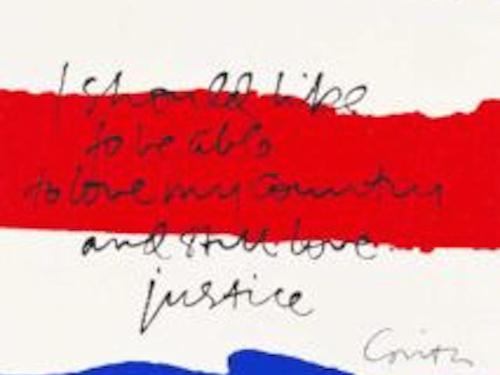 I should like
to be able
to love my country
and still love
justice
Corita